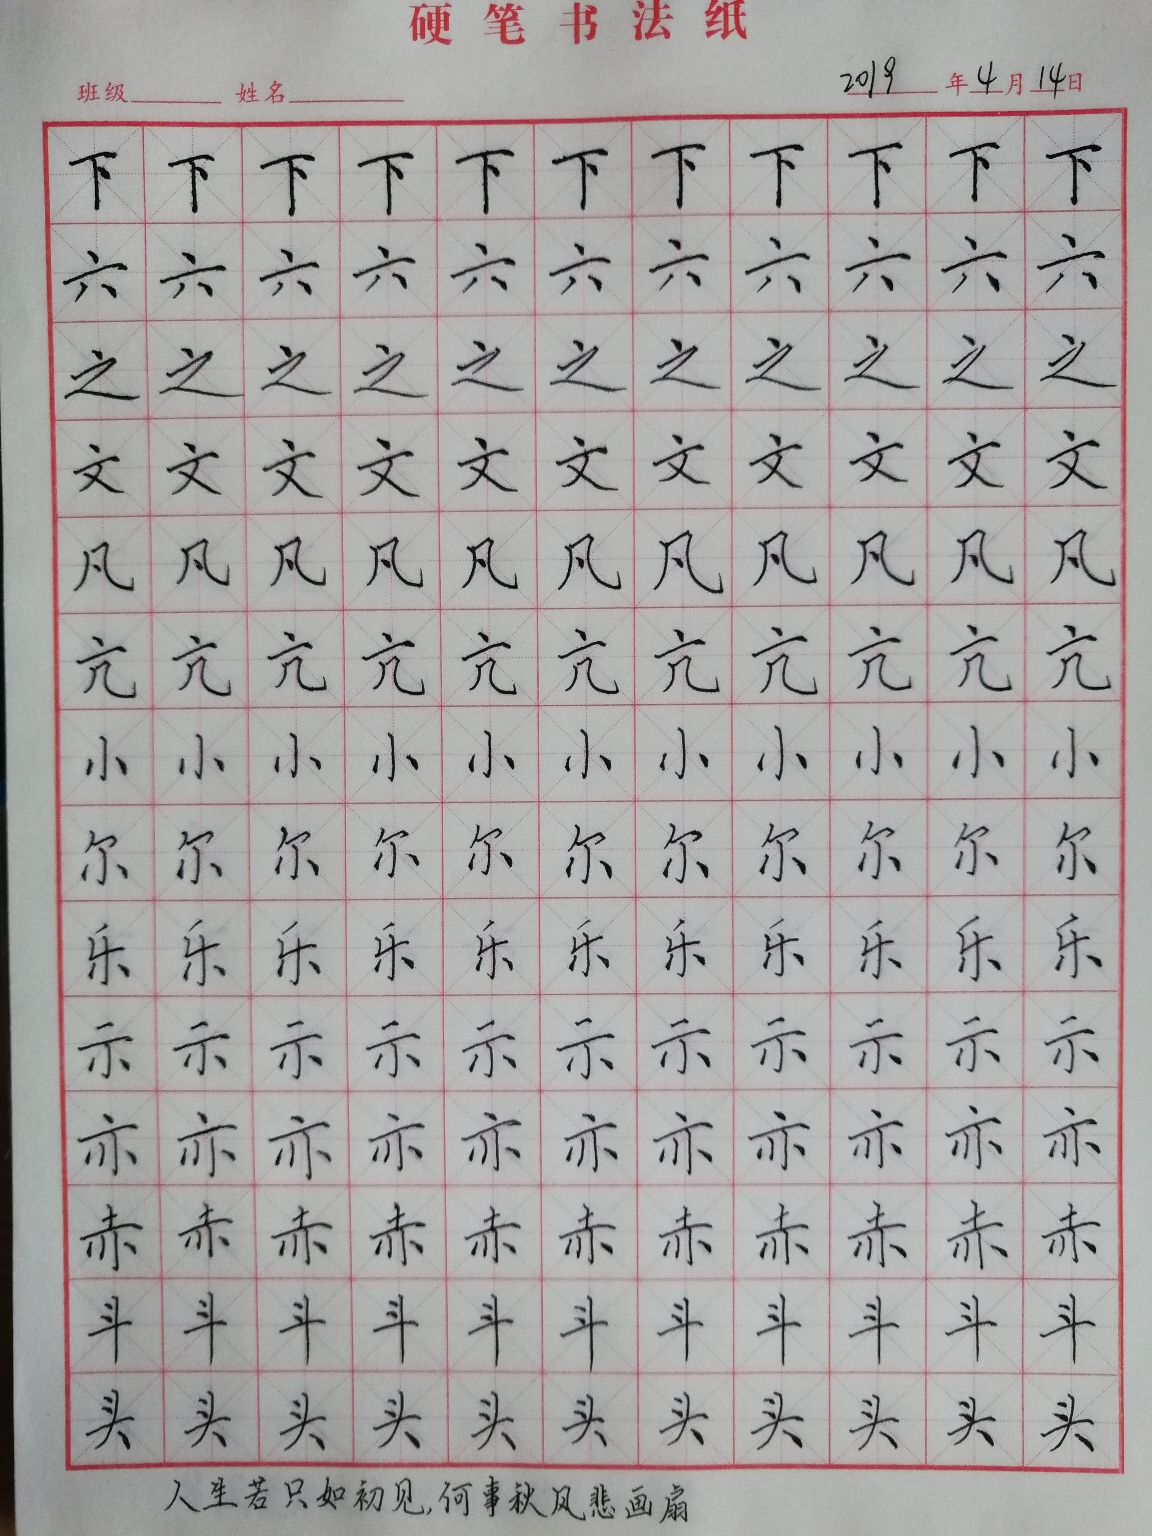 硬笔书法纸
班级 姓名 2019年4月14日
下下下下下下下下下下下
六六六六六六六六六六六
之之之之之之之之之之之
文文文文文文文文文文文
凡凡凡凡凡凡凡凡凡凡凡
亢亢亢亢亢亢亢亢亢亢亢
小小小小小小小小小小小
尔尔尔尔尔尔尔尔尔尔尔
乐乐乐乐乐乐乐乐乐乐乐
示示示示示示示示示示示
亦亦亦亦亦亦亦亦亦亦亦
赤赤赤赤赤赤赤赤赤赤赤
斗斗斗斗斗斗斗斗斗斗斗
头头头头头头头头头头头
人生若只如初见,何事秋风悲画扇